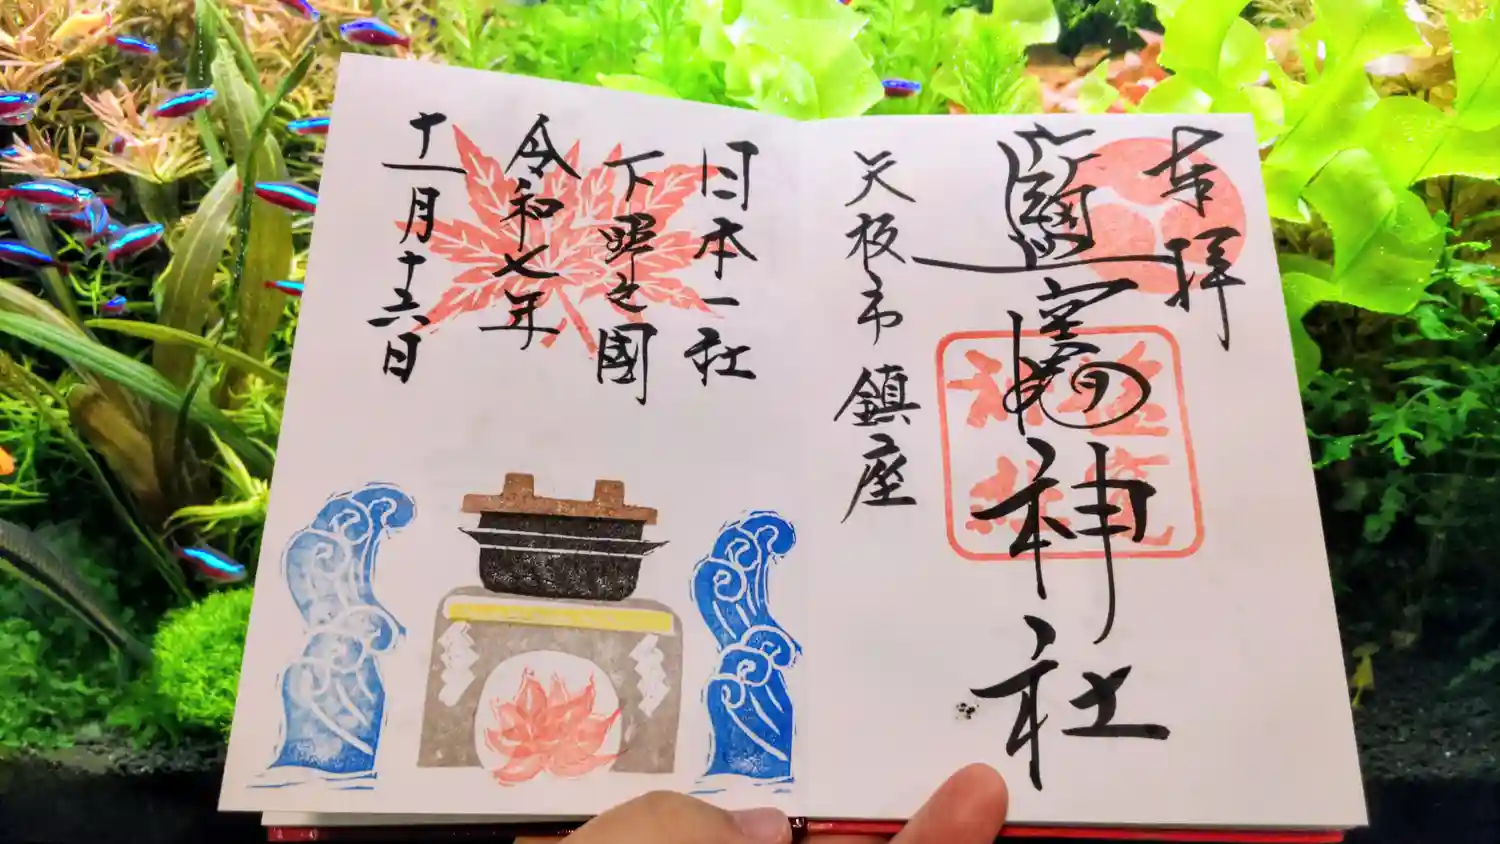 奉拝
鹽竈神社
矢板市 鎮座
日本一社
下野之國
令和七年
十一月十六日